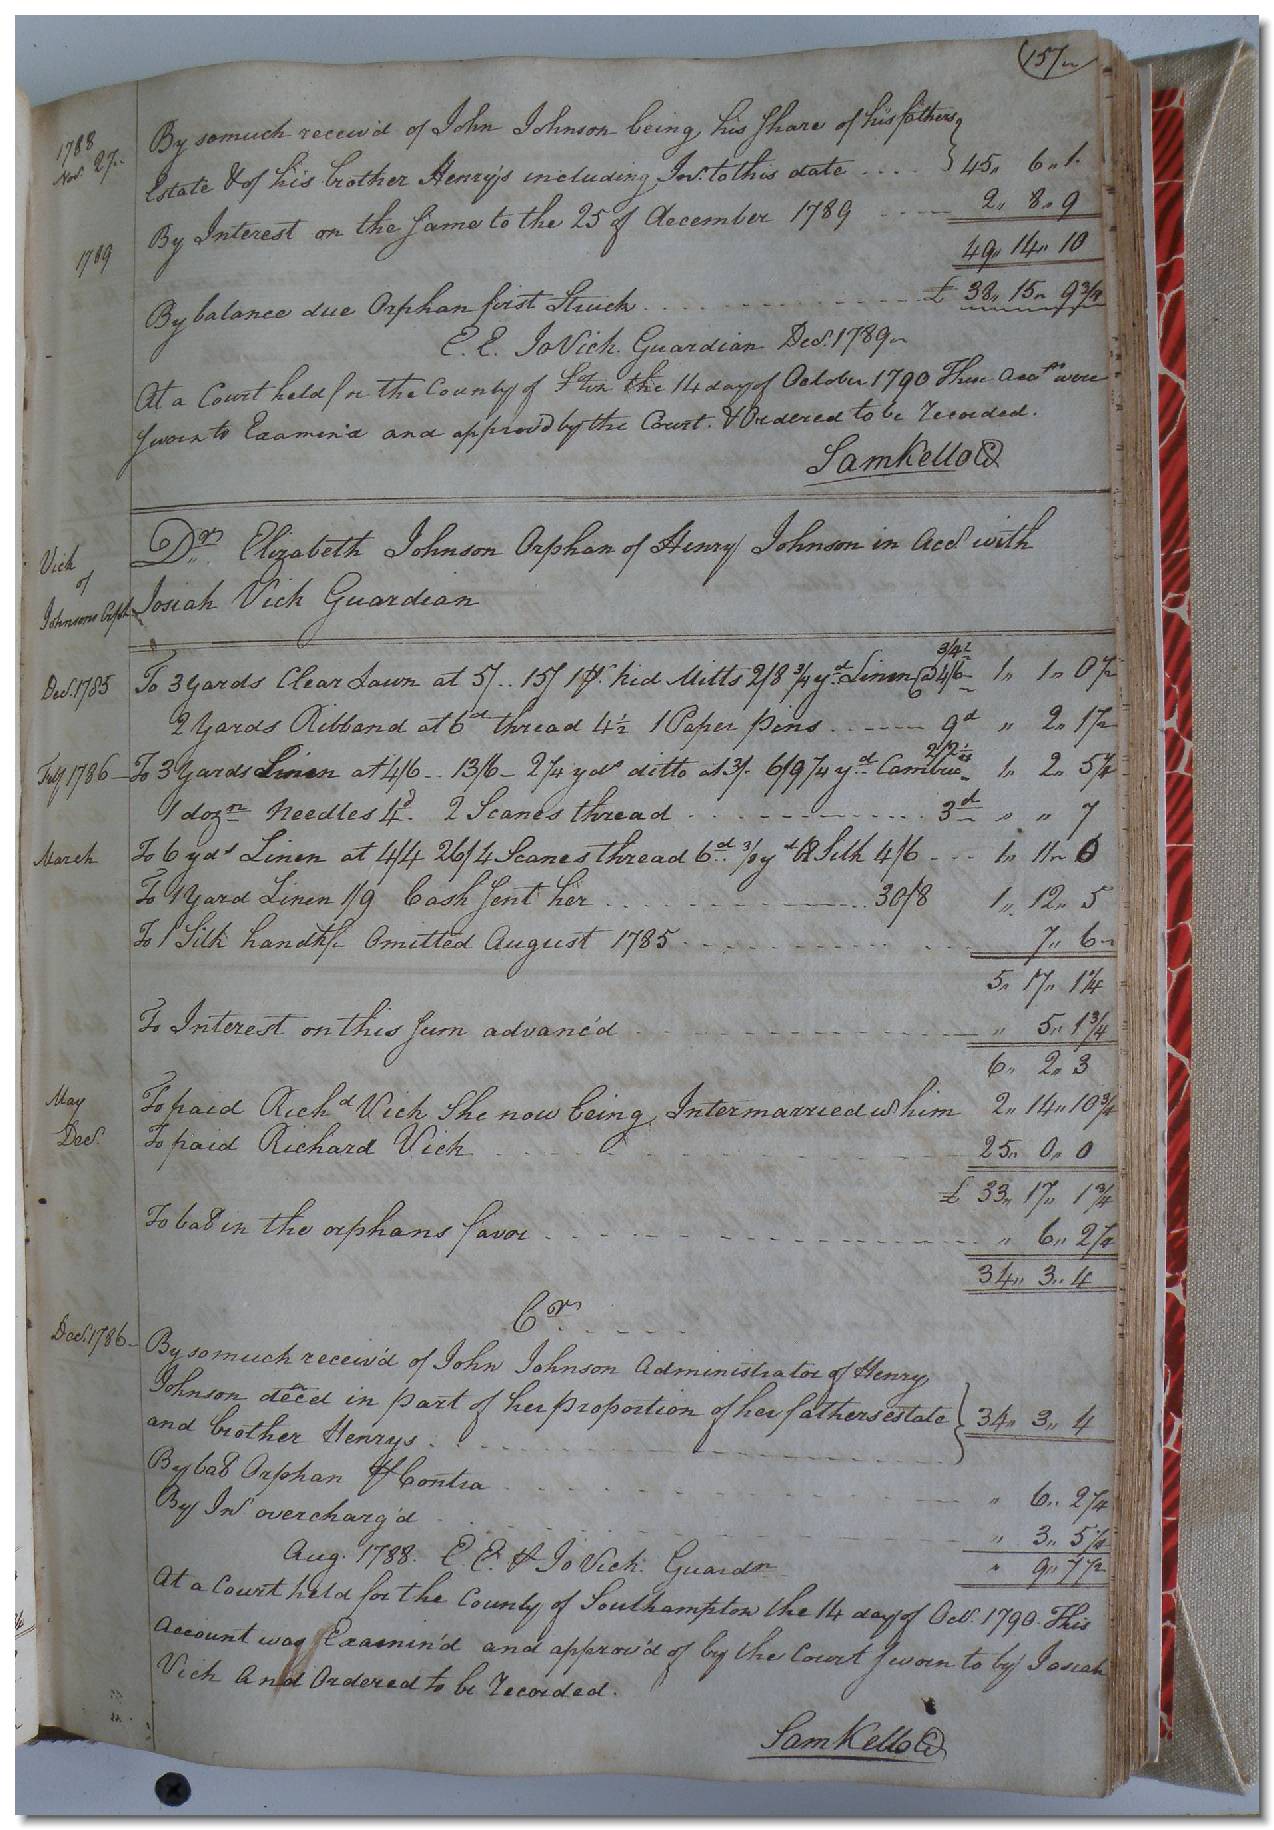 157
1788
Nov. 27
By somuch receiv'd of John Johnson being his share of his fathers
Estate & of his brother Henry's including Int. to this date .... 45,, 6,, 1
1789
By Interest on the same to the 25 of december 1789 ---- 2,, 8,, 9
49,, 14,, 10
By balance due Orphan first Struck ........ £ 38,, 15,, 9 3/4
E. E. Jo Vick. Guardian Decr. 1789
At a Court held for the County of Soton the 14 day of October 1790 These Accts were
sworn to Examin'd and approv'd by the Court. & Ordered to be recorded.
Sam Kello C
Vick
of
Johnsons Orph
Dr. Elizabeth Johnson Orphan of Henry Johnson in Acct with
Josiah Vick Guardian
3/4½
Decr. 1785 To 3 yards Clear Lawn at 5/.. 15/ 1 pr. kid Mitts 2/8 3/4 yd. Linen @ 4/6 1,, 1,, 0½
2 yards Ribband at 6d thread 4½ 1 Paper Pins ...---- 9d ,, 2,, 1½
2/2¼
Feby 1786 To 3 yards Linen at 4/6.. 13/6 - 2¼ yds ditto at 3/. 6/9 ¼ yd. Cambric 1,, 2,, 5¼
1 dozn needles 4d. 2 Scanes thread ............ 3d ,, ,, 7
March To 6 yds Linen at 4/4 26/4 Scanes thread 6d. yd Silk 4/6 --- 1,, 11,, 0
To 1 yard Linen 1/9 Cash sent her ............ 30/8 1,, 12,, 5
To 1 Silk handkf. Omitted August 1785 ............ 7,, 6
5,, 17,, 1¼
To Interest on this sum advanc'd ............ ,, 5,, 1¾
6,, 2,, 3
May To paid Richd Vick She now being Intermarried wh him 2,, 14,, 10¾
Decr. To paid Richard Vick ............ 25,, 0,, 0
£ 33,, 17,, 1¾
To bal in the orphans favor ............ ,, 6,, 2¼
34,, 3,, 4
Cr.
Decr. 1786 By somuch receiv'd of John Johnson Administrator of Henry
Johnson decd in part of her proportion of her fathers estate
and brother Henrys ............ 34,, 3,, 4
By bal Orphan pr Contra ............ ,, 6,, 2¼
By Int overcharg'd ............ ,, 3,, 5¼
Aug. 1788. E. E. Jo Vick. Guardn ,, 9,, 7½
At a Court held for the County of Southampton the 14 day of Octr. 1790. This
Account was Examin'd and approv'd of by the Court sworn to by Josiah
Vick And Ordered to be recorded.
Sam Kello C